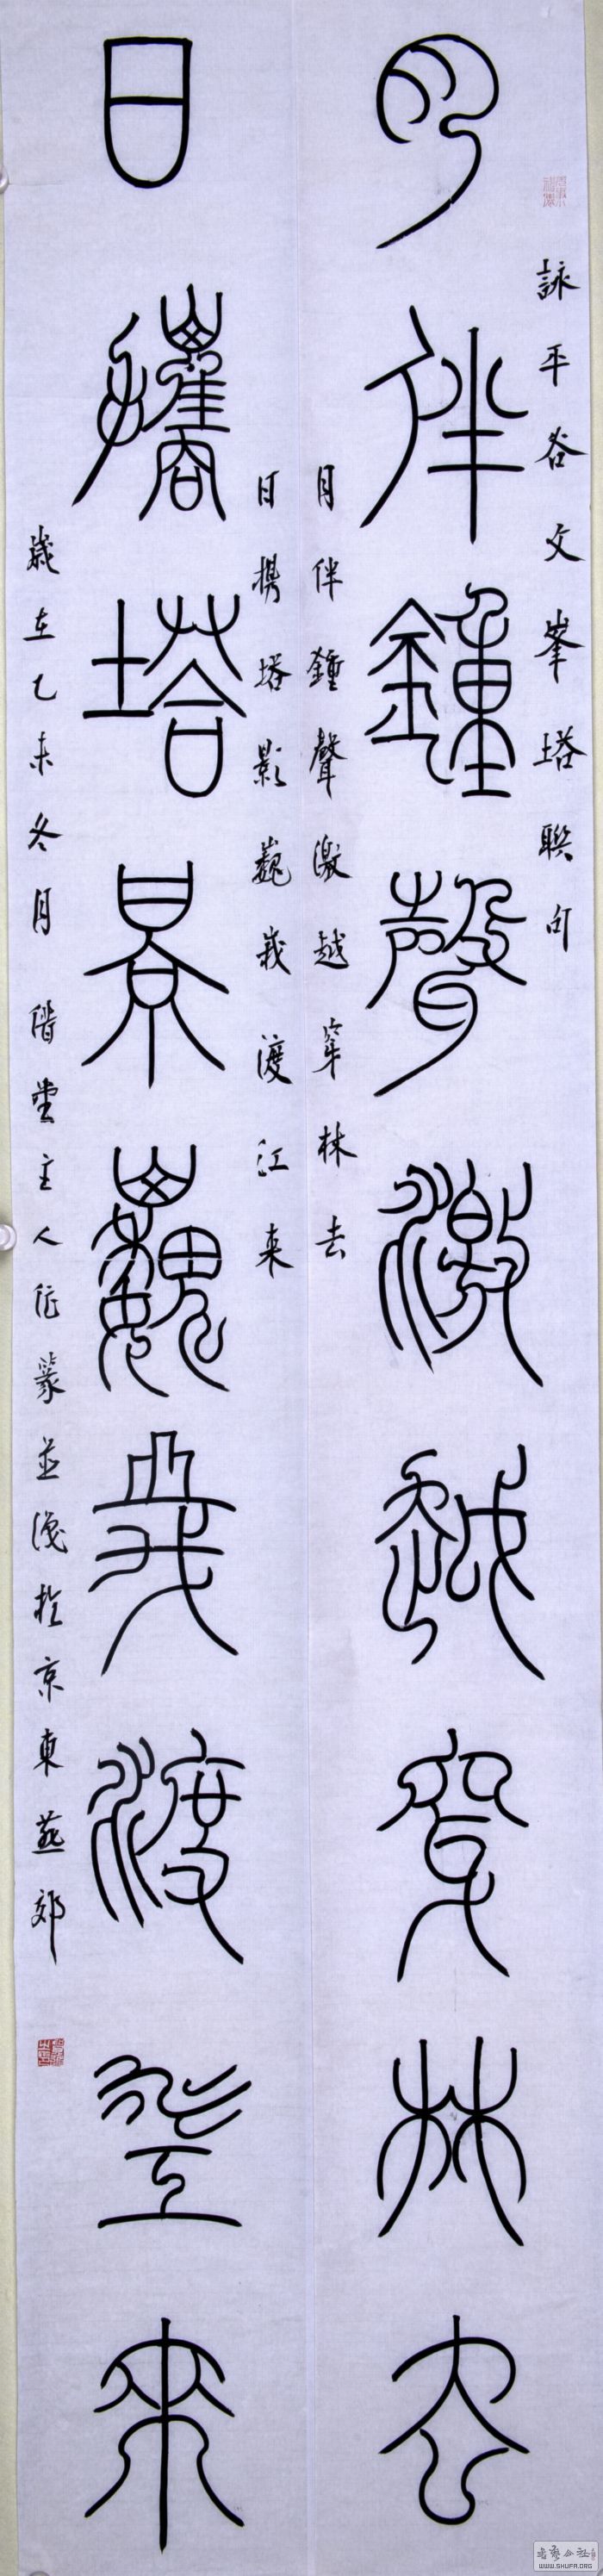 詠平谷文峯塔聯句
月伴鍾聲激越穿林去
月伴鍾聲激越穿林去
日攜塔影巍峩渡江来
日攜塔景巍峩渡江來
歲在乙未冬月
堂主人作篆並識於京東燕郊
WWW.SHUFA.ORG